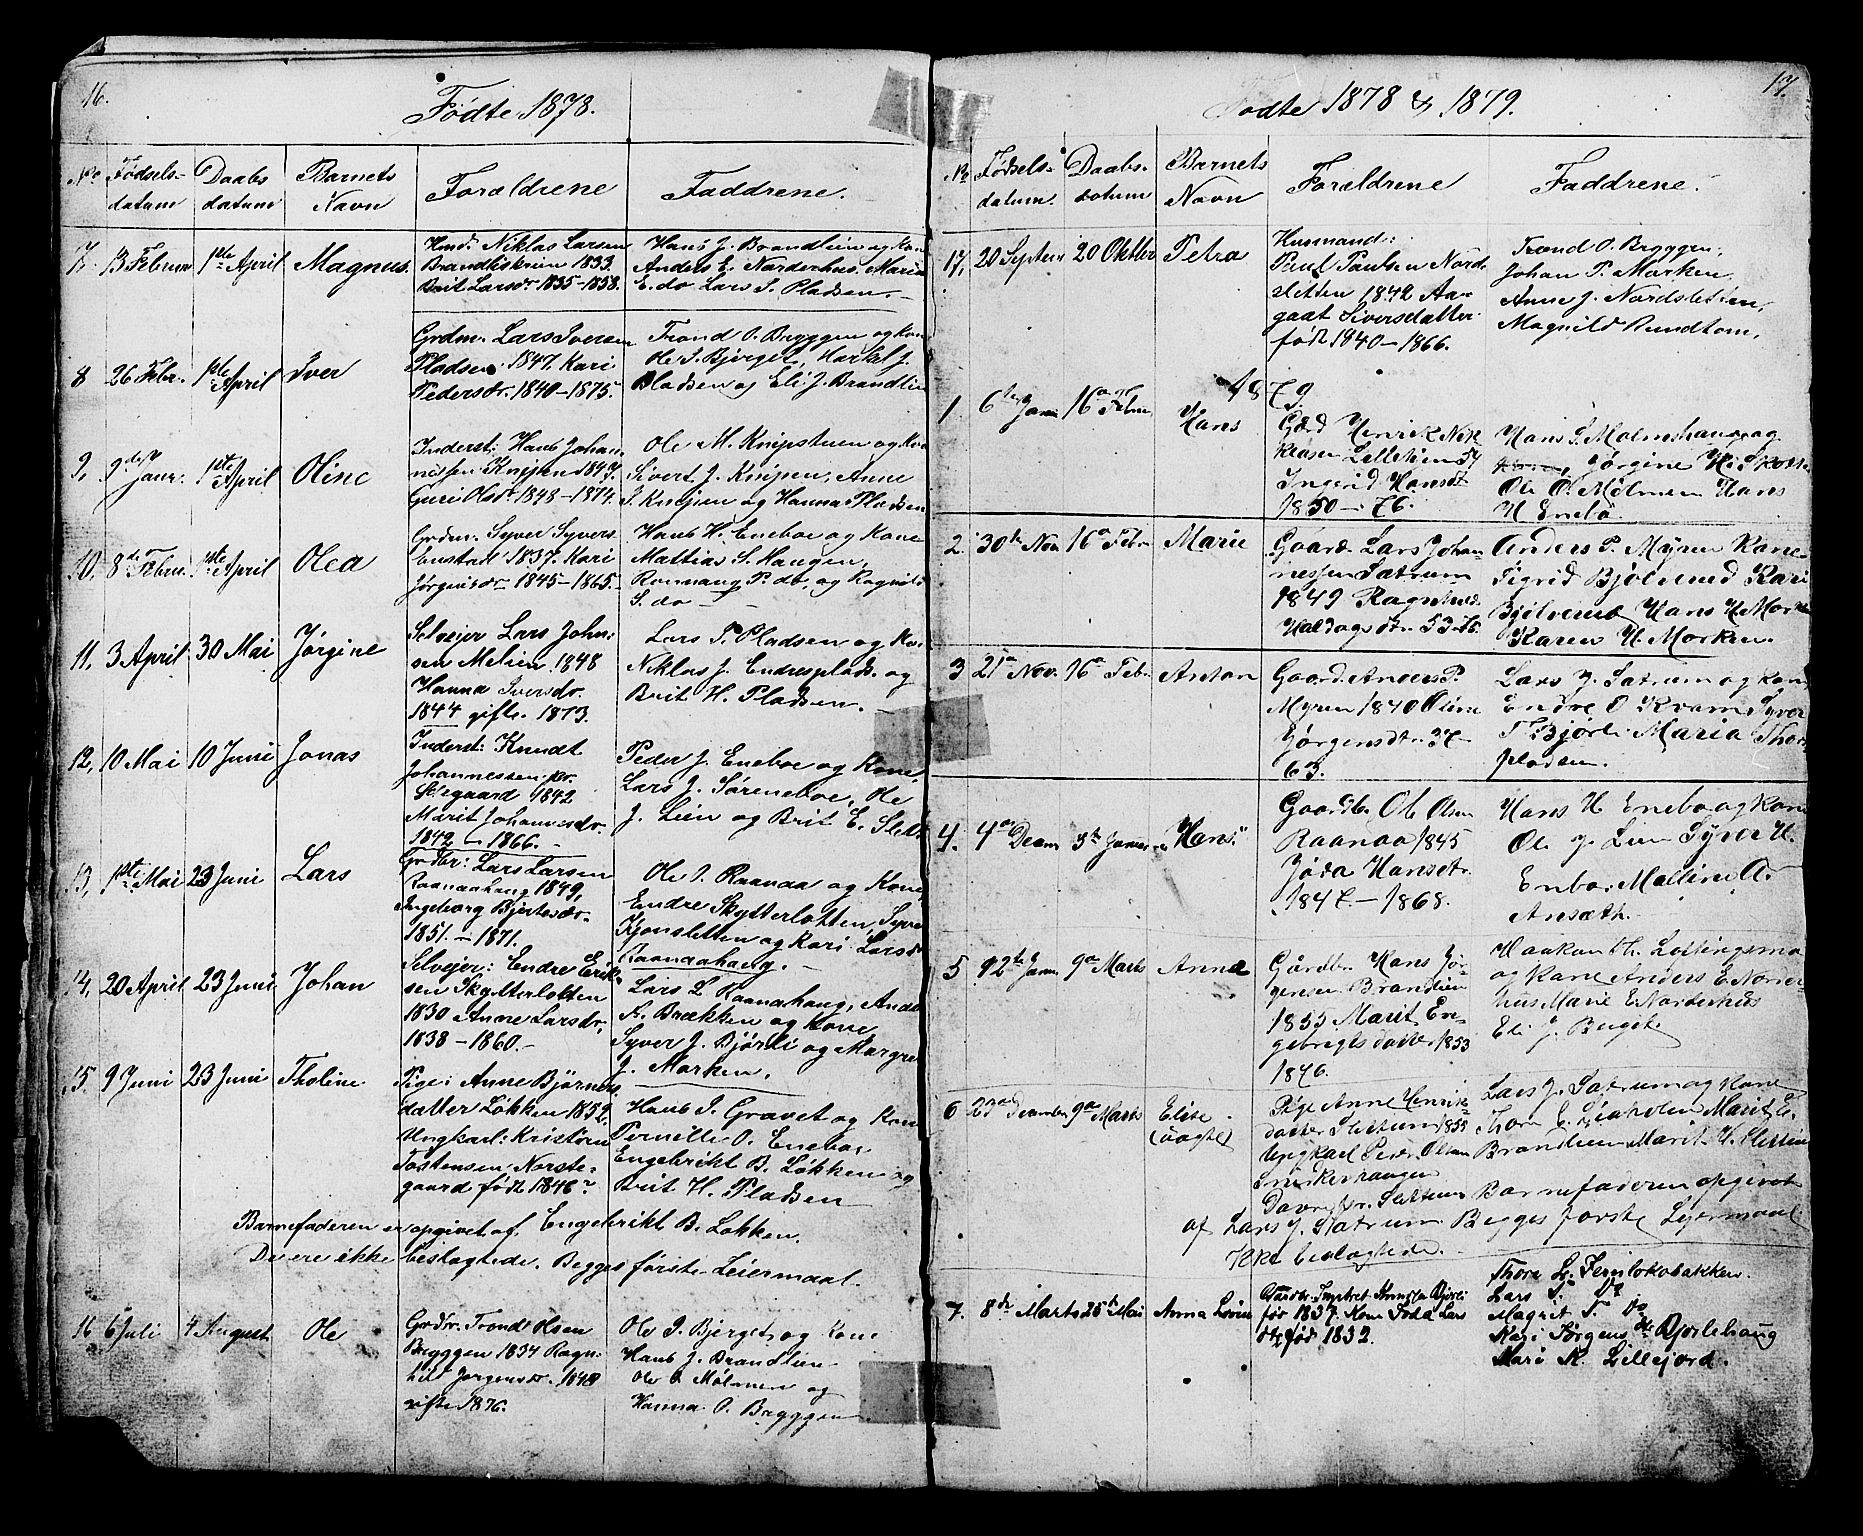 16.
Fødte 1878.
No Fødsels- datum
Daabs datum
Barnets Navn
Forældrene
Faddrene.
7. 13 Februar 1ste April Magnus.
Hmd. Niklas Larsen
Brandliskrien 1833.
Brit Larsdr 1835-1858.
Hans J. Brandlien og Kone
Anders E. Norderhus, Maria
E. do Lars S. Pladsen.
8 26 Febr. 1ste April Iver
Grdm. Lars Iversen
Pladsen 1847. Kari
Pedersdr. 1840-1875.
Trond O. Bryggen og kone
Ole I. Bjerget, J.
Pladsen og Eli J. Brandlien
9, 9de Janr. 1ste April Oline
Inderst: Hans Johan-
nessen Knipen 1847.
Guri Olsdr. 1848-1874.
Ole M. Knipstuen og Kone
Sivert J. Knipen, Anne
J. Knipen og Hanna Pladsen
10. 8de Febru. 1ste April Olea
Grdm: Syver Syvers.
Enstad 1837. Kari
Jørgensdr 1845-1865.
Hans H. Eneboe og Kone
Mathias S. Haugen,
P. do, og Ragnild
S. do
11, 3 April 30 Mai Jørgine
Selvejer Lars John-
sen Melien 1848
Hanna Iversdr.
1844 gifte. 1873.
Lars P. Pladsen og Ko-
Niklas J. Endresplads. og
Brit H. Pladsen.
12, 10 Mai 10 Juni Jonas
Inderst: Knudt
Johannessen pr.
1842
Marit Johannesdr.
1842 - 1866.
Peder J. Eneboe og Kone
Lars J. Søreneboe, Ole
J. Lien og Brit E. Slette
13, 1ste Mai 23 Juni Lars
Grdbr: Lars Larsen
Raanaahaug 1849,
Ingeborg Bjertesdr.
1851. - 1871.
Ole O. Raanaa og Kone
Endre Skytterlotten, Syver
Kjønsletten og Kari Larsdr
Raanaahaug.
14, 20 April 23 Juni Johan
Selvejer: Endre Erik-
sen Skytterlotten
1830 Anne Larsdr.
1838 - 1860.
Lars L Raanahaug, Anders
A. Brækken og Kone
Syver J. Bjørli og Margre
J. Morken.
15. 9 Juni 23 Juni Tholine
Pige: Anne Bjørns-
datter Løkken 1852.
Ungkarl: Kristøren
Tostensen Norste-
gaard født 1846?
Hans I. Gravet og Kone
Pernille O. Eneboe,
Engebrikt B. Løkken og
Brit H. Pladsen
Barnefaderen er opgivet af Engebrikt B. Løkken.
De ere ikke beslægtede. Begges første Leiermaal.
16 6 Juli 4 August Ole
Grdbr. Trond Olsen
Bryggen 1834 Ragn-
hild Jørgensdr. 1848
gifte 1876.
Ole I. Bjerget, og Kone
Hans J. Brandlien
Ole O. Mølmen og
Hanna O. Bryggen
17.
Fødte 1878 & 1879.
No Fødsels- datum.
Daabs- datum
Barnets Navn
Forældrene
Faddrene.
17, 20 Septem 20 Oktber Petra
Husmand:
Paul Paulsen Nord-
sletten 1842 Aa-
gaat Siversdatter
født 1840-1866.
Trond O. Bryggen,
Johan P. Morken,
Anne J. Nordsletten,
Magnild Rundtom.
1879.
1. 6te Janu 16de Febru Hans
Gård Henrik Nik-
laisen Lillelien 54
Ingerid Hansdt
1850 - 76.
Hans P. Molmshaug og
Kone, Jørgine H. Skotte
Ole O. Mølmen Hans
H Enebo
2. 30te Nov 16de Febr Marie
Gaard Lars Johan-
nessen Sætrum
1849 Ragnhild
Haldogsdtr. 53-76.
Anders P. Myren Kone
Sigrid Bjølverud Kari
Bjølverud Hans H Morken
Karen H. Morken.
3 21de Nov. 16de Febr Anton
Gaard. Anders P.
Myren 1840 Oline
Jørgensdtr. 37
63.
Lars J. Sætrum og kone
Endre O Kvam Syver
T. Bjørli Maria Thors
pladsen.
4. 4de Decem 5te Januar Hans
Gaardb. Ole Olsen
Raanaa 1845
Jøda Hansdt.
1847 - 1868.
Hans H Enebo og kone
Ole J. Lien Syver H.
Enbo. Mattine A.
Ansæth.
5 12te Jan 9de Marts Anne
Gårdbr Hans Jør-
gensen Brandlien
1855 Marit En-
gebregtsdatter 1853
1876.
Haakon Th. Løftingsmo
og Kone Anders E Norder-
hus Marie E Norderhus
Eli J. Berget
6 23de December 9de Marts Elise (uægte)
Pige Anne Henriks-
datter Slettum 1855
Ungkarl Peder Olsen
Snerkerhaugen
Davre pr. Slettum
Lars J. Sætrum og Kone
Thore E. Lieholen Marit E.
Brandlien Marit H. Slettum
Barnefaderen opgivet
af Lars J. Sætrum Begges første Lejermaal
Ikke beslægtede.
7. 8de Marts 25te Mai Anna Lovise
Amundsen Bjørli
før 1837. Kone Joda Lars
dtr født 1832.
Thore L. Fernlokobakken.
Lars T. Do
Magrit T. Do
Kari Jørgensdtr Bjorlehaug
Mari K. Lillejord.